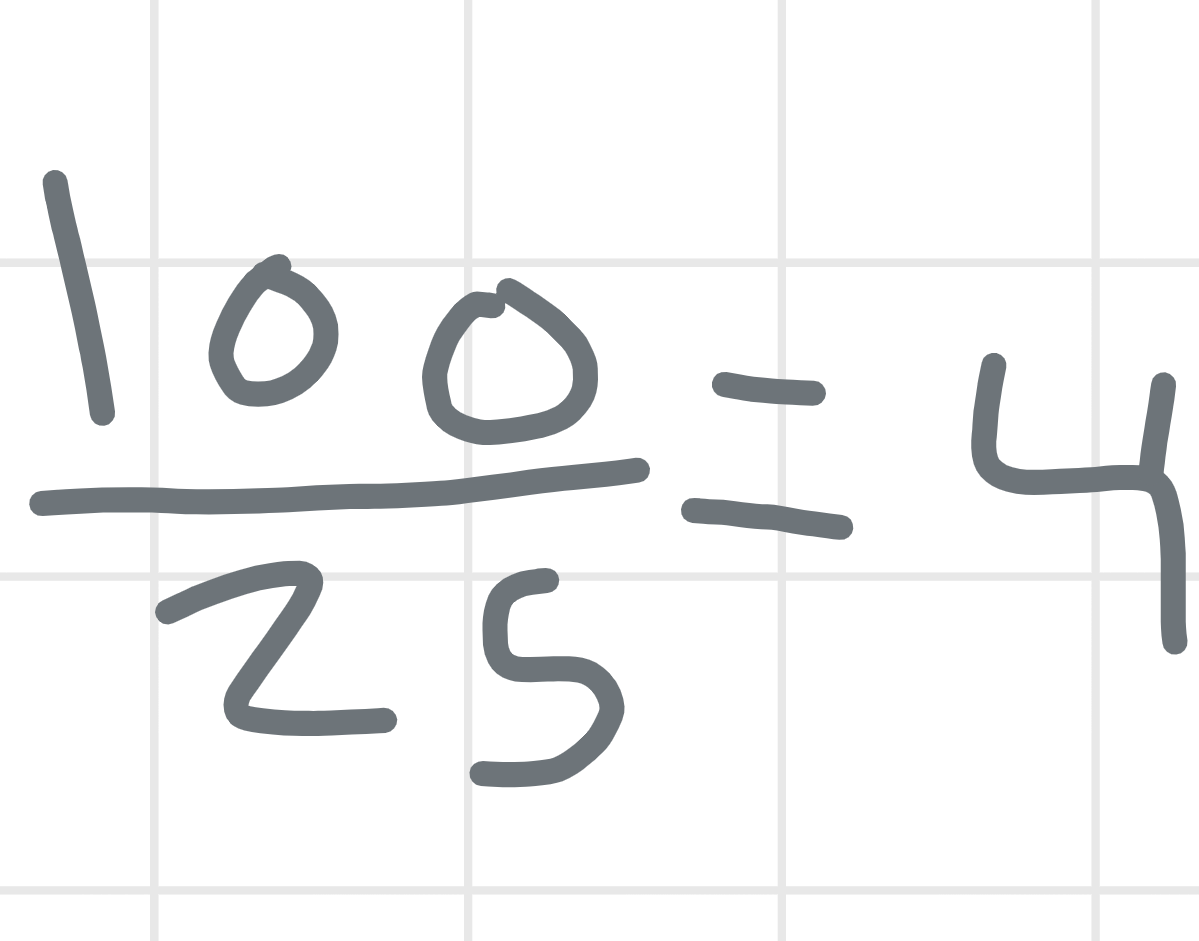 100/25 = 4